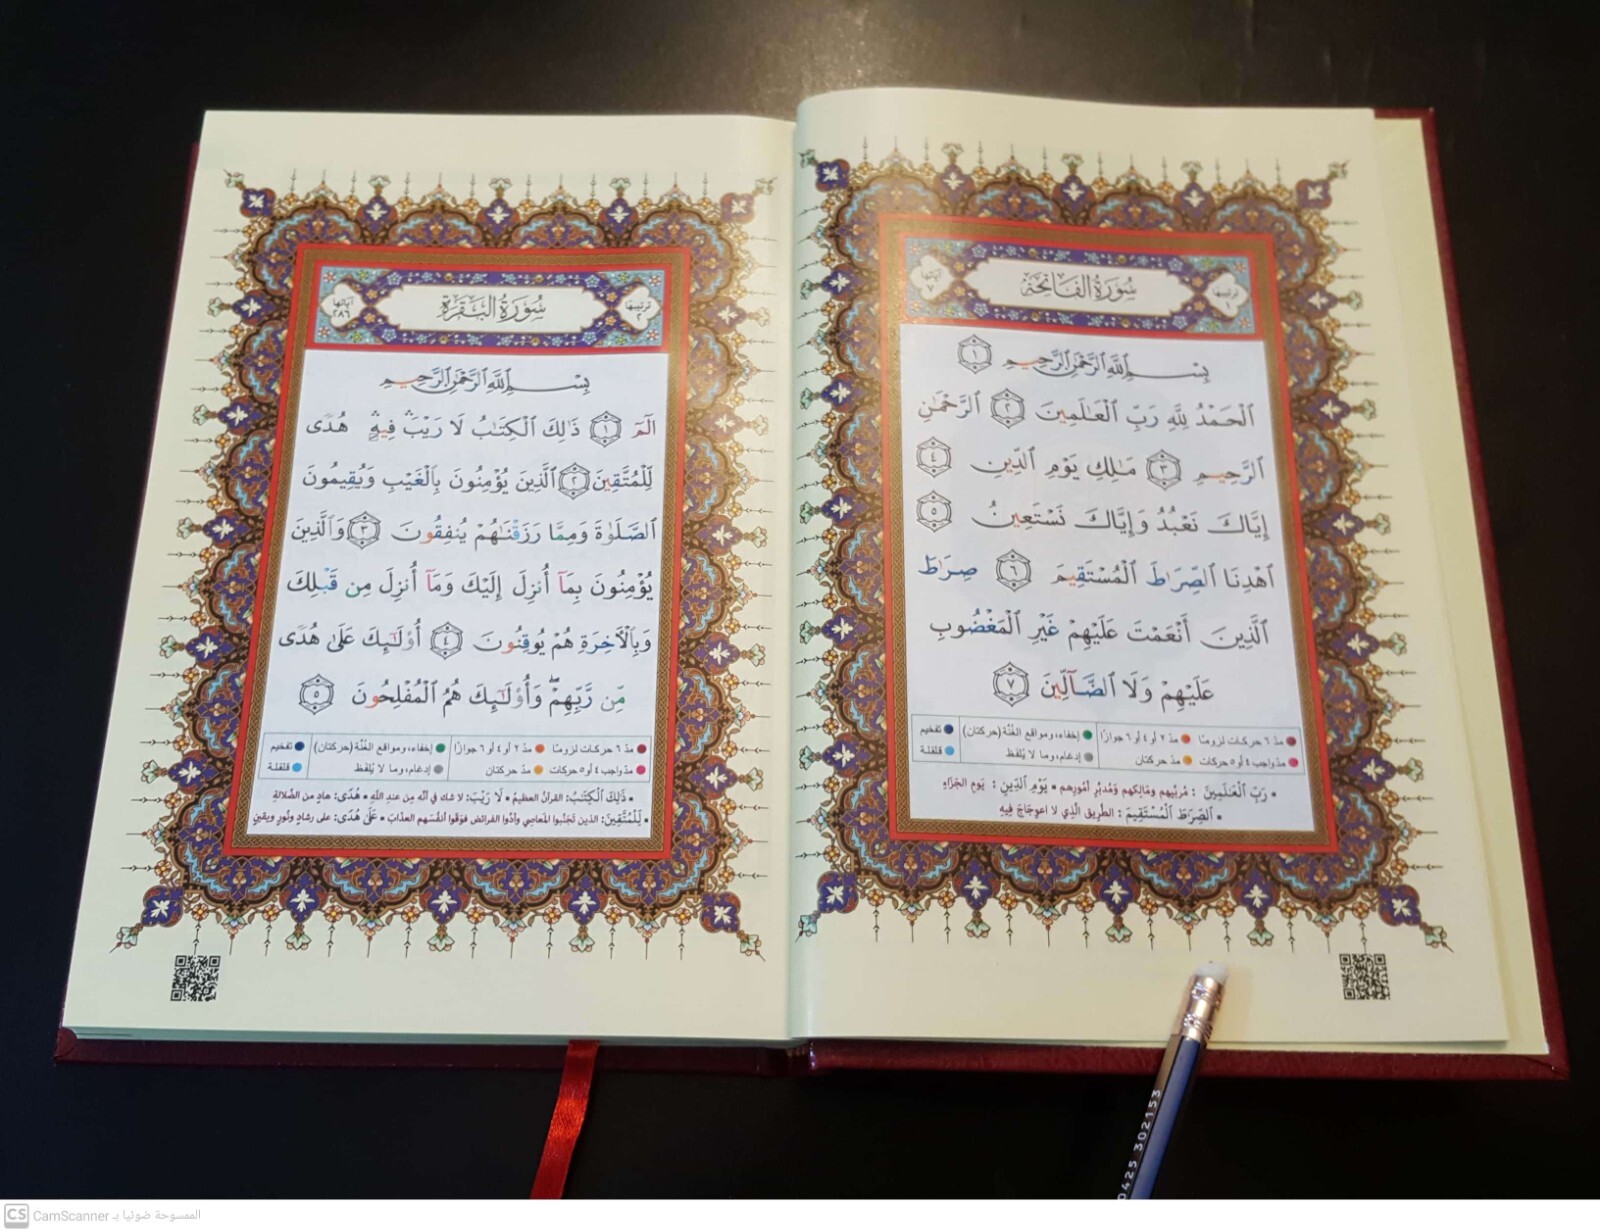 سُورَةُ الفَاتِحَةِ
ترتيبها ١
آياتها ٧
بِسْمِ ٱللَّهِ ٱلرَّحْمَٰنِ ٱلرَّحِيمِ ١
ٱلْحَمْدُ لِلَّهِ رَبِّ ٱلْعَٰلَمِينَ ٢ ٱلرَّحْمَٰنِ
ٱلرَّحِيمِ ٣ مَٰلِكِ يَوْمِ ٱلدِّينِ ٤
إِيَّاكَ نَعْبُدُ وَإِيَّاكَ نَسْتَعِينُ ٥
ٱهْدِنَا ٱلصِّرَٰطَ ٱلْمُسْتَقِيمَ ٦ صِرَٰطَ
ٱلَّذِينَ أَنْعَمْتَ عَلَيْهِمْ غَيْرِ ٱلْمَغْضُوبِ
عَلَيْهِمْ وَلَا ٱلضَّآلِّينَ ٧
مدّ ٦ حركات لزومًا مدّ ٢ أو ٤ أو ٦ جوازًا إخفاء، ومواقع الغُنَّة (حركتان) تفخيم
مدّ واجب ٤ أو ٥ حركات مدّ حركتان إدغام، وما لا يُلفَظ قلقلة
• رَبِّ ٱلْعَٰلَمِينَ : مُربِّيهم ومَالِكهم ومُدبِّر أمُورِهم • يَوْمِ ٱلدِّينِ : يَوم الجَزَاءِ
• ٱلصِّرَٰطَ ٱلْمُسْتَقِيمَ : الطَّرِيق الَّذِي لا اعوِجَاجَ فِيهِ
سُورَةُ البَقَرَةِ
ترتيبها ٢
آياتها ٢٨٦
بِسْمِ ٱللَّهِ ٱلرَّحْمَٰنِ ٱلرَّحِيمِ
الٓمٓ ١ ذَٰلِكَ ٱلْكِتَٰبُ لَا رَيْبَۛ فِيهِۛ هُدًى
لِّلْمُتَّقِينَ ٢ ٱلَّذِينَ يُؤْمِنُونَ بِٱلْغَيْبِ وَيُقِيمُونَ
ٱلصَّلَوٰةَ وَمِمَّا رَزَقْنَٰهُمْ يُنفِقُونَ ٣ وَٱلَّذِينَ
يُؤْمِنُونَ بِمَآ أُنزِلَ إِلَيْكَ وَمَآ أُنزِلَ مِن قَبْلِكَ
وَبِٱلْءَاخِرَةِ هُمْ يُوقِنُونَ ٤ أُو۟لَٰٓئِكَ عَلَىٰ هُدًى
مِّن رَّبِّهِمْۖ وَأُو۟لَٰٓئِكَ هُمُ ٱلْمُفْلِحُونَ ٥
مدّ ٦ حركات لزومًا مدّ ٢ أو ٤ أو ٦ جوازًا إخفاء، ومواقع الغُنَّة (حركتان) تفخيم
مدّ واجب ٤ أو ٥ حركات مدّ حركتان إدغام، وما لا يُلفَظ قلقلة
• ذَٰلِكَ ٱلْكِتَٰبُ: القرآن العظيم • لَا رَيْبَ: لا شك في أنّه مِن عندِ اللّهِ • هُدًى: هادٍ من الضّلالةِ
• لِّلْمُتَّقِينَ: الذين تَجَنَّبوا المَعاصي وأدَّوا الفرائض فوَقَوا أنفُسَهم العذابَ • عَلَىٰ هُدًى: على رشادٍ ونُورٍ ويقينٍ
0425 302153
CS CamScanner الممسوحة ضوئيا بـ